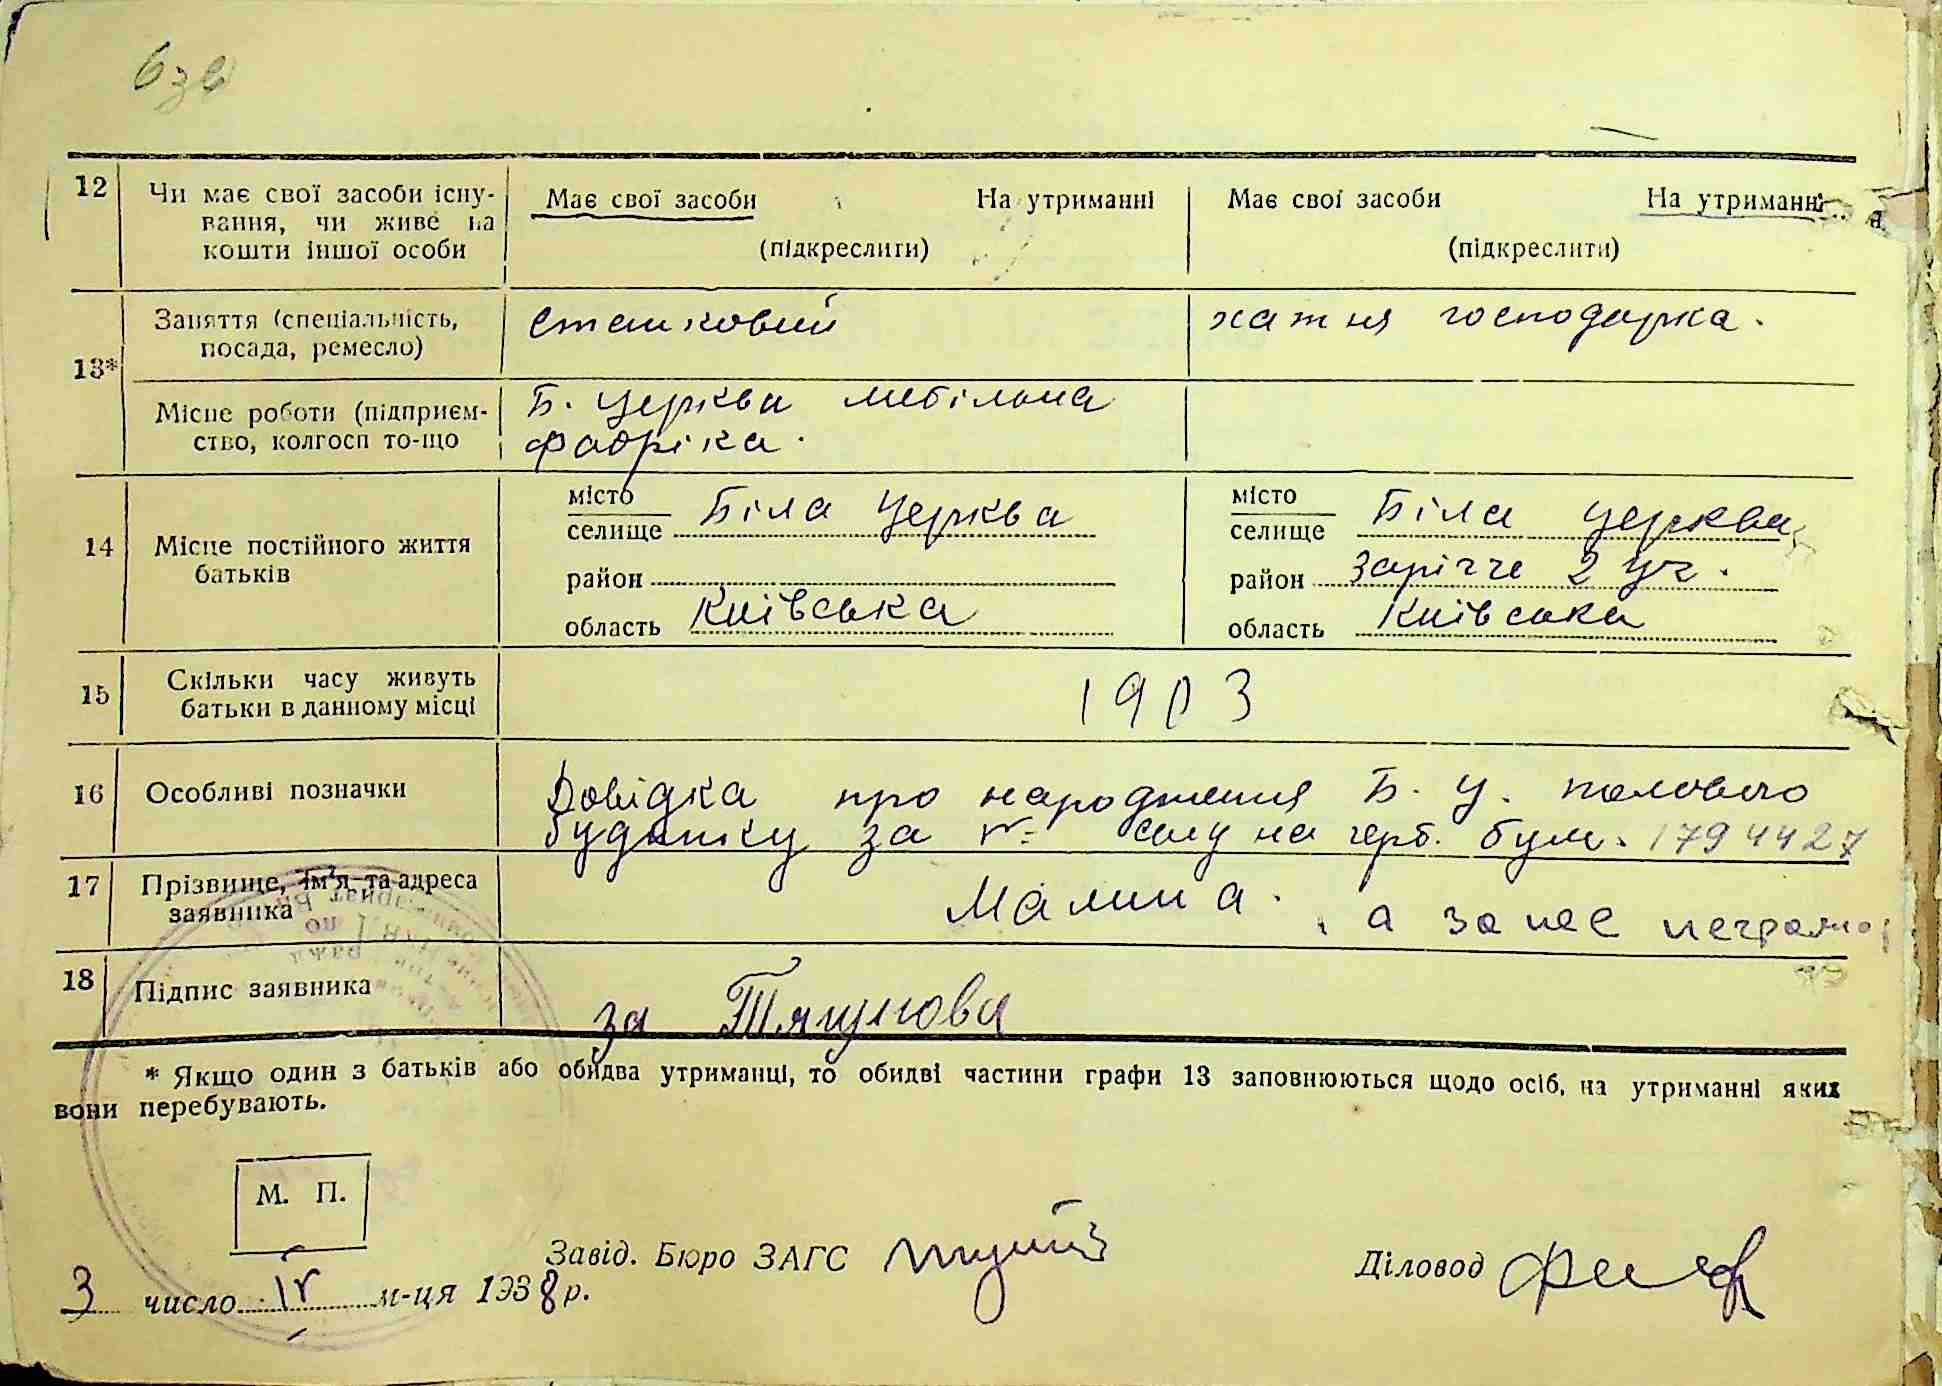 6зв
12 Чи має свої засоби існу- Має свої засоби На утриманні Має свої засоби На утриманні
вання, чи живе на
кошти іншої особи (підкреслити) (підкреслити)
Заняття (спеціальність, посада, ремесло) становий хатня господарка.
13*
Місце роботи (підприєм- Б. Церква мебільна
ство, колгосп то-що фабріка.
місто Біла Церква місто Біла Церква
селище селище
14 Місце постійного життя район район Заріччє 2 уч.
батьків
область Київська область Київська
15 Скільки часу живуть 1903
батьки в данному місці
16 Особливі позначки Довідка про народження Б. Ц. полового
будинку за № на герб. бум. 1794427
17 Прізвище, ім'я та адреса Малина. , а за неє неграмот
заявника
18 Підпис заявника за Тягунова
* Якщо один з батьків або обидва утриманці, то обидві частини графи 13 заповнюються щодо осіб, на утриманні яких
вони перебувають.
М. П.
Завід. Бюро ЗАГС Діловод
3 число IV м-ця 1938 р.